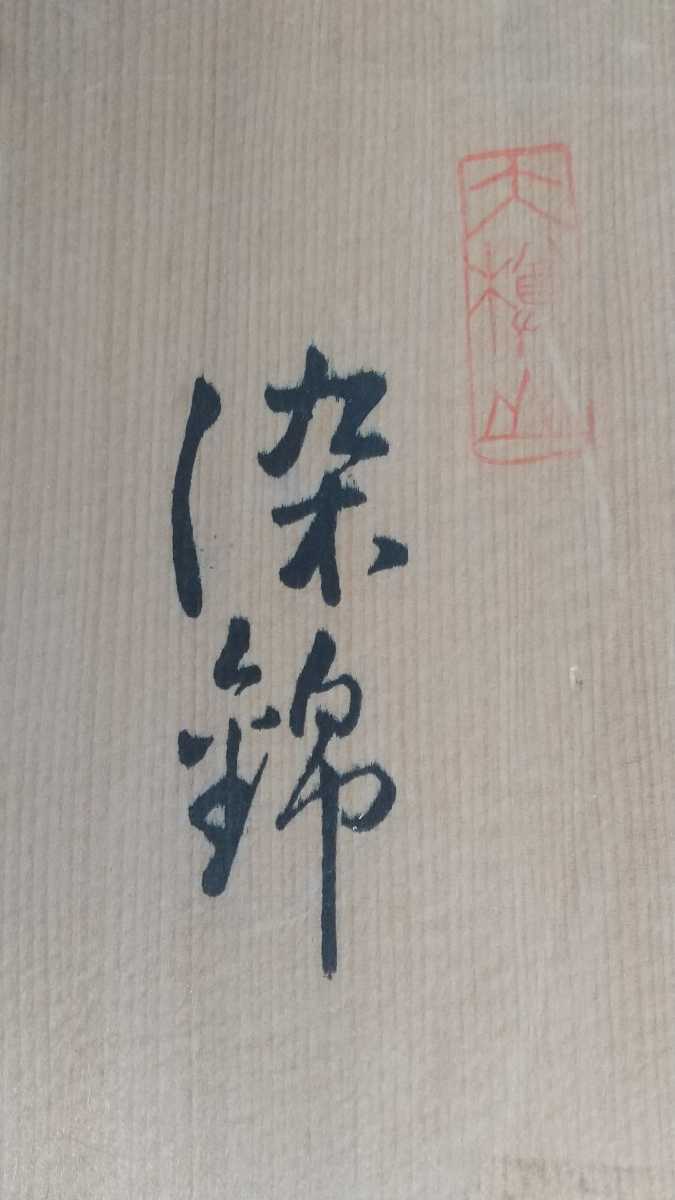 天樽山
染錦